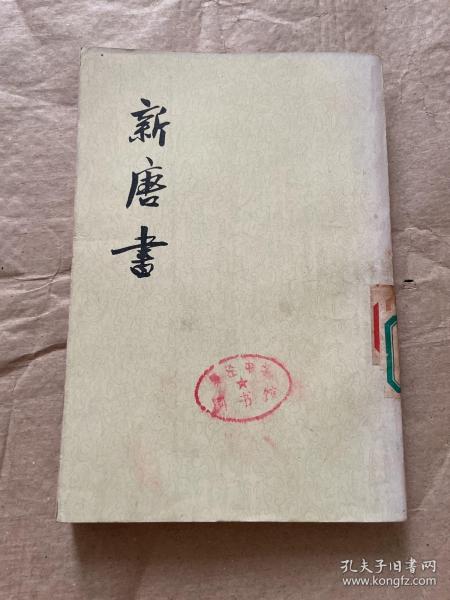 新唐書
图书馆
孔夫子旧书网
www.kongfz.com